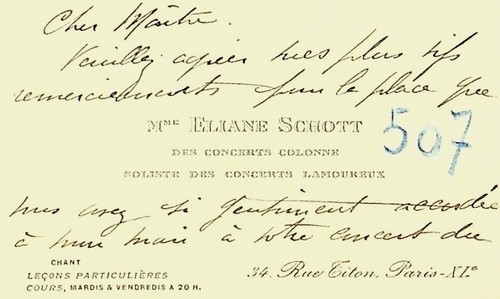 Cher Maître.
Veuillez agréer mes plus vifs
remerciements pour la place que
MME ELIANE SCHOTT
507
DES CONCERTS COLONNE
SOLISTE DES CONCERTS LAMOUREUX
vous avez si gentiment accordée
à mon mari à votre concert du
CHANT
LEÇONS PARTICULIÈRES
COURS, MARDIS & VENDREDIS A 20 H.
34, Rue Titon, Paris-XIe